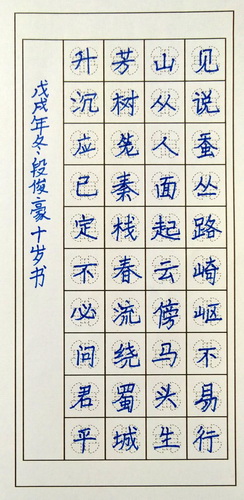 见说蚕丛路崎岖不易行
山从人面起云傍马头生
芳树笼秦栈春流绕蜀城
升沉应已定不必问君平
戊戌年冬·段俊豪十岁书